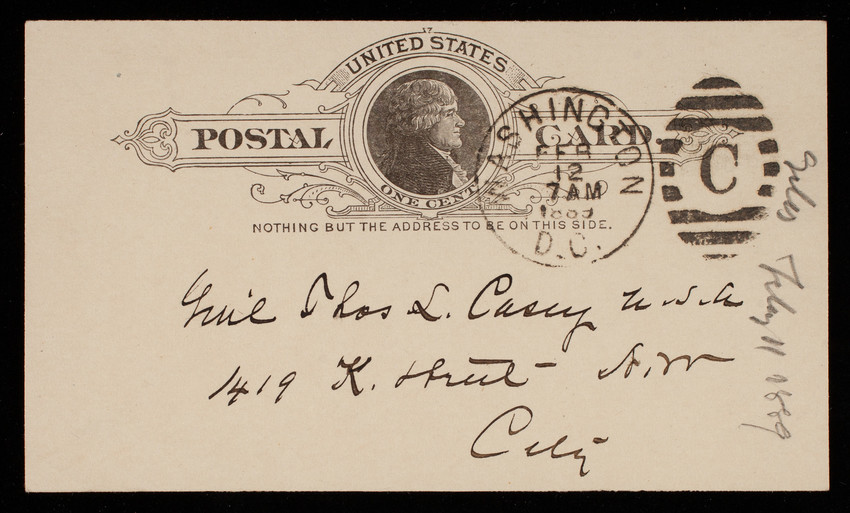 17
UNITED STATES
POSTAL CARD.
ONE CENT
NOTHING BUT THE ADDRESS TO BE ON THIS SIDE.
WASHINGTON
FEB
12
7AM
1889
D.C.
C
Gen'l Thos L. Casey U.S.A
1419 K. Street N.W
City
Giles Feby 11 1889